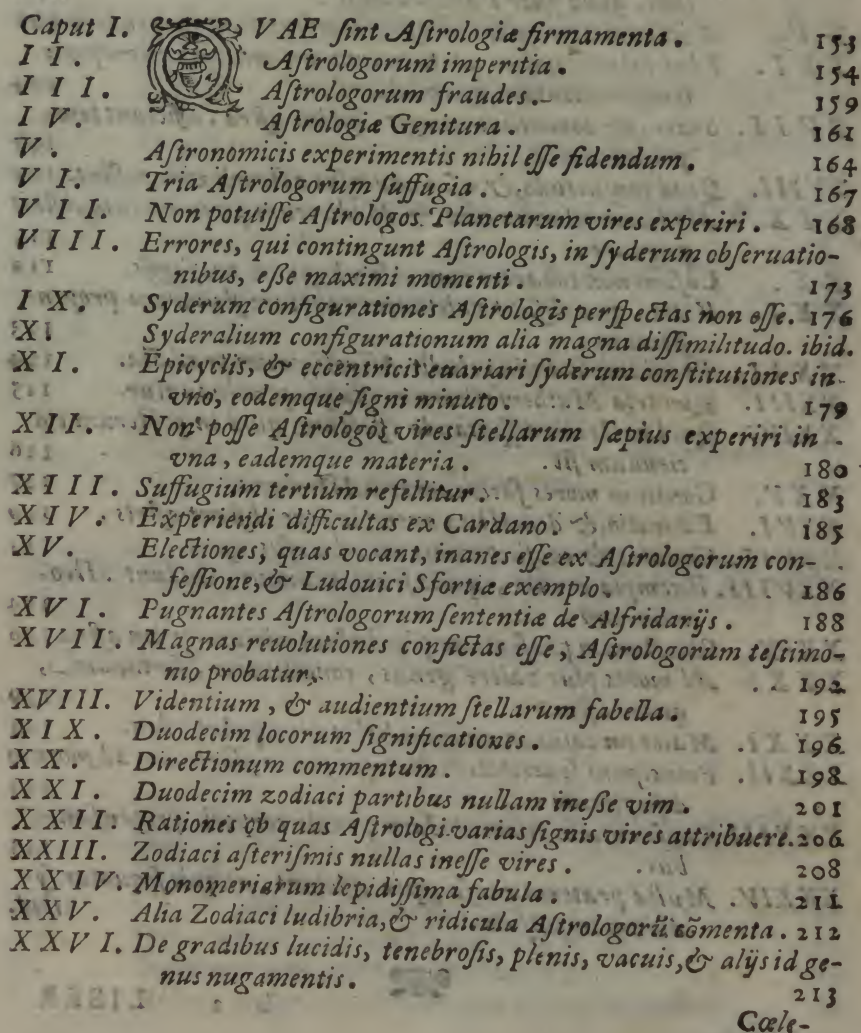 Caput I. QVAE ſint Aſtrologiæ firmamenta. 153
I I. Aſtrologorum imperitia. 154
I I I. Aſtrologorum fraudes. 159
I V. Aſtrologiæ Genitura. 161
V. Aſtronomicis experimentis nihil eſſe fidendum. 164
V I. Tria Aſtrologorum ſuffugia. 167
V I I. Non potuiſſe Aſtrologos Planetarum vires experiri. 168
V I I I. Errores, qui contingunt Aſtrologis, in ſyderum obſeruatio-
nibus, eſſe maximi momenti. 173
I X. Syderum configurationes Aſtrologis perſpectas non eſſe. 176
X. Syderalium configurationum alia magna diſſimilitudo. ibid.
X I. Epicyclis, & eccentricis euariari ſyderum conſtitutiones in
vno, eodemque ſigni minuto. 179
X I I. Non poſſe Aſtrologos vires ſtellarum ſæpius experiri in
vna, eademque materia. 180
X I I I. Suffugium tertium refellitur. 183
X I V. Experiendi difficultas ex Cardano. 185
X V. Electiones, quas vocant, inanes eſſe ex Aſtrologorum con-
feſſione, & Ludouici Sfortiæ exemplo. 186
X V I. Pugnantes Aſtrologorum ſententiæ de Alfridarijs. 188
X V I I. Magnas reuolutiones confictas eſſe, Aſtrologorum teſtimo-
nio probatur. 192
XVIII. Videntium, & audientium ſtellarum fabella. 195
X I X. Duodecim locorum ſignificationes. 196
X X. Directionum commentum. 198
X X I. Duodecim zodiaci partibus nullam ineſſe vim. 201
X X II. Rationes ob quas Aſtrologi varias ſignis vires attribuere. 206
XXIII. Zodiaci aſteriſmis nullas ineſſe vires. 208
X X I V. Monomeriarum lepidiſſima fabula. 211
X X V. Alia Zodiaci ludibria, & ridicula Aſtrologorũ cõmenta. 212
X X V I. De gradibus lucidis, tenebroſis, plenis, vacuis, & alijs id ge-
nus nugamentis. 213
Cœle-